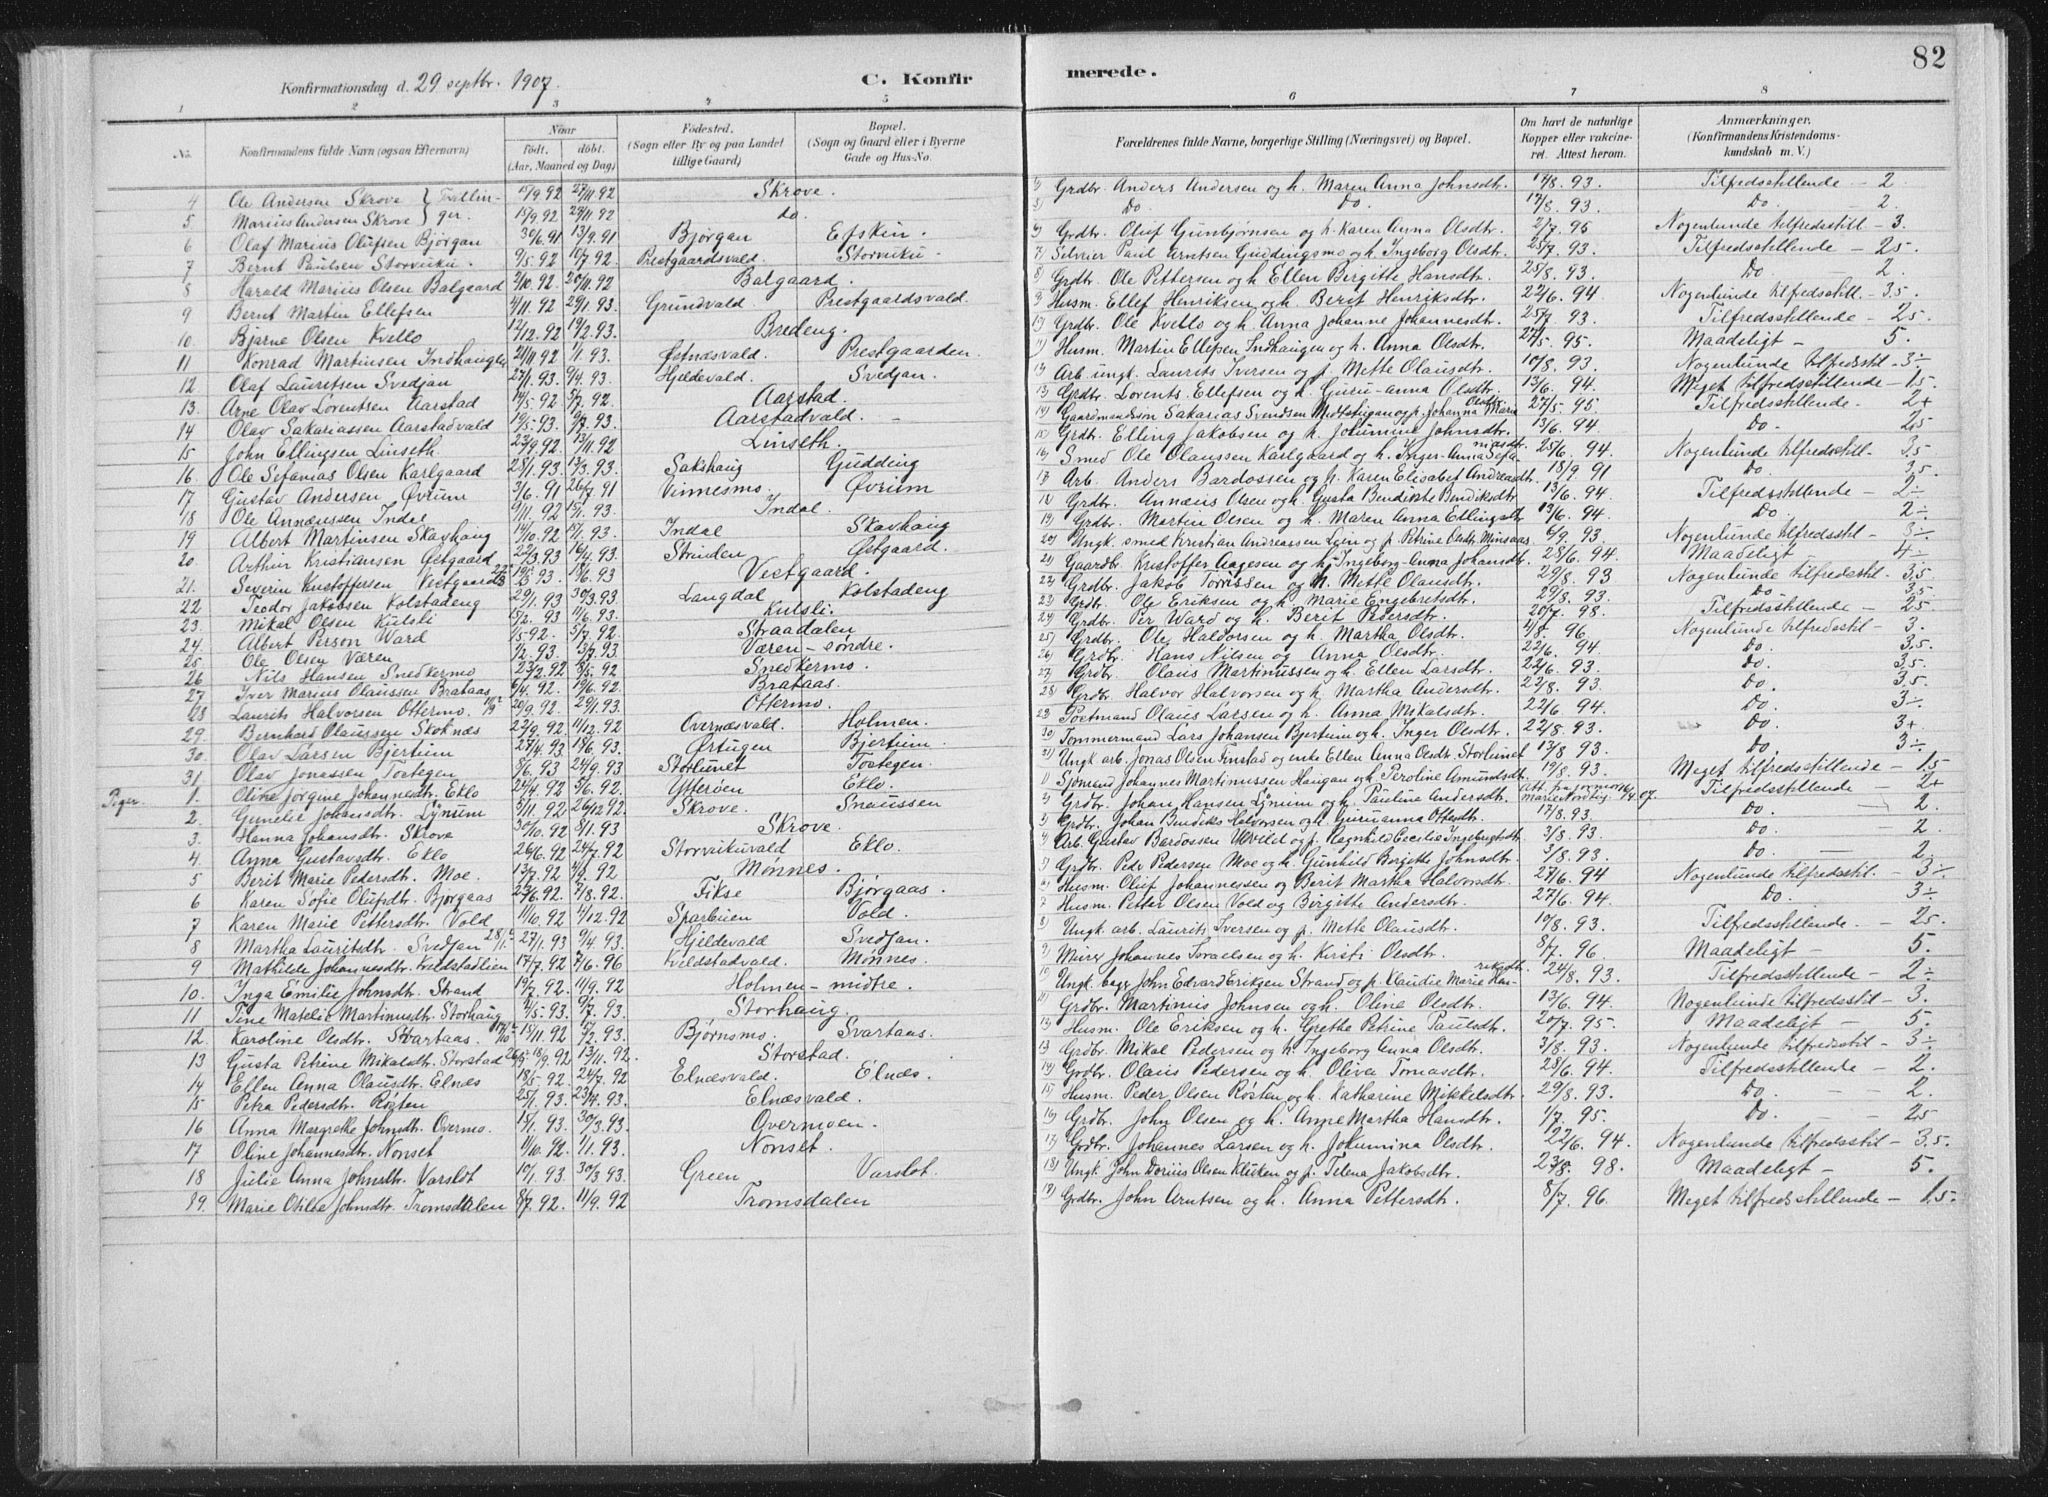 82
Konfirmationsdag d. 29 septbr. 1907.
C. Konfirmerede.
1 2 3 4 5 6 7 8
No. Konfirmandens fulde Navn (ogsaa Efternavn) Naar født, døbt. (Aar, Maaned og Dag) Fødested. (Sogn eller By og paa Landet tillige Gaard) Bopæl. (Sogn og Gaard eller i Byerne Gade og Hus-No. Forældrenes fulde Navne, borgerlige Stilling (Næringsvei) og Bopæl. Om havt de naturlige Kopper eller vakcineret. Attest herom. Anmærkninger. (Konfirmandens Kristendomskundskab m. V.)
4 Ole Andersen Skrove } Tvillin- 15/9 92 27/11 92 Skrove. Grdbr. Anders Andersen og h. Maren Anna Johnsdtr. 17/8. 93. Tilfredsstillende - 2.
5 Marius Andersen Skrove } ger. 15/9 92 27/11 92 do. Do. Do. 17/8. 93. Do - 2.
6 Olaf Marius Olufsen Bjørgan 30/6. 91 13/9. 91 Bjørgan Efskin Grdbr. Oluf Gunbjørnsen og h. Karen Anna Olsdtr. 2/7. 95 Nogenlunde tilfredsstil. - 3.
7 Bernt Paulsen Storviku. 9/5. 92 10/7. 92 Prestgaardsvald. Storviku. Selveier Paul Arntsen Guddingsmo og h. Ingeborg Olsdtr. 25/7. 93. Tilfredsstillende - 2.5
8 Harald Marius Olsen Balgaard 2/10. 92 20/11. 92 Balgaard. Grdt. Ole Pettersen og h Ellen Bergitte Hansdtr. 28/8. 93. Do 2.
9 Bernt Marten Ellefsen 4/11. 92 29/1. 93. Grundvald. Prestgaardsvald. Husm. Ellef Henriksen og h. Berit Henriksdtr. 22/6. 94 Nogenlunde tilfredsstil. - 3.5.
10. Bjarne Olsen Kvello 12/12. 92 19/2. 93. Bredeng. Grdbr. Ole Kvello og h. Anna Johanne Johannesdtr. 25/7. 93. Tilfredsstillende - 2.5.
11 Konrad Martinsen Indhaugen 21/11 92 1/1. 93. Østnæsvald. Prestgaarden. Husm. Martin Ellefsen Indhaugen og h. Anna Olsdtr. 27/5. 95. Maadeligt - 5.
12 Olaf Lauritsen Svedjan 27/1. 93. 9/4. 93. Hjeldevald. Svedjan. Arb. ungk. Laurits Iversen og p. Mette Olausdtr. 10/8. 93. Nogenlunde tilfredsstil. 3÷
13. Arne Olav Lorentsen Aarstad 14/5. 92 3/7. 92. Aarstad. Grdbr. Lorents Ellefsen og h. Guru-anna Olsdtr. 13/6. 94. Meget tilfredsstillende - 1.5.
14 Olav Sakariassen Aarstadvald 19/5. 93. 9/7. 93. Aarstadvald. Gaardmandssøn Sakarias Svendsen Midtstugan og p. Johanna Marie Olsdtr. 27/5. 95 Tilfredsstillende. 2+
15 John Ellingsen Linseth. 23/9. 92. 13/11. 92 Linseth. Grdt. Elling Jakobsen og h. Johannne Johnsdtr. 13/6. 94. Do. 2.5
16. Ole Sefanias Olsen Karlgaard 25/1. 93. 12/3. 93. Sakshaug Gudding Smed Ole Olaussen Karlgaard og h. Inger-Anna Sefaniasdtr. 25/6. 94 Nogenlunde tilfredsstil. - 3.5
17 Gustav Andersen Øvrum 3/6. 91 26/7. 91 Vinnesmo. Øvrum Arb. Anders Bardossen og h. Karen Elisabet Andreasdtr. 18/9 91 Do 3.5.
18 Ole Annæussen Indal 9/11. 92 15/1. 93. Indal. Grdbr. Annæus Olsen og h. Gusta Bendikte Bendiksdtr. 13/6. 94. Tilfredsstillende - 2÷
19 Albert Martinsen Skavhaug 14/10. 92 15/1. 93. Indal Skavhaug Grdbr. Marten Olsen og h. Maren Anna Ellingsdtr 13/6. 94. Do. 2÷
20 Arthur Kristiansen Østgaard 22/3. 93 16/4. 93. Strinden Østgaard. Ungk. smed Kristian Andreassen Lein og p. Petrine Olsdtr. Minsaas 6/9. 93. Nogenlunde tilfredsstil - 3÷
21. Severin Kristoffersen Vestgaard 23/3 93. 18/6. 93 Vestgaard. Gaardbr. Kristoffer Aagesen og h. Ingeborg-Anna Johansdtr. 28/6. 94. Maadeligt - 4÷
22 Teodor Jakobsen Kolstadeng 29/1. 93. 30/3. 93. Langdal Kolstadeng Grdbr. Jakob Torrissen og h. Mette Olausdtr. 29/8. 93 Nogenlunde tilfredsstil. 3.5
23. Mikal Olsen Kulsli 15/2. 93 11/6. 93. Kulsli. Grdbr. Ole Eriksen og h. Marie Engebretsdtr. 29/8. 93. Do 3.5.
24. Albert Person Ward 1/5 92. 5/7. 92. Straadalen Grdbr. Per Ward og h. Berit Pedersdtr. 20/7. 98. Tilfredsstillende - 2.5
25 Ole Olsen Væren 1/2. 93. 13/7. 93 Væren-søndre. Grdbr. Ole Haldorsen og h. Martha Olsdtr. 4/8. 96 Nogenlunde tilfredsstil. - 3.
26 Nils Hansen Snedkermo 23/2. 92 8/5. 92 Snedkermo. Grdbr. Hans Nilsen og Anna Olsdtr. 22/6. 94. Do. 3.5.
27. Iver Marius Olaussen Brataas 6/4. 92. 19/6. 92. Brataas. Grdbr. Olaus Martinussen og h. Ellen Larsdtr. 22/6. 93. Do. 3.5.
28 Laurits Halvorsen Ottermo. 20/9. 92. 29/1. 93. Ottermo. Grdbr. Halvor Halvorsen og h. Martha Andersdtr. 22/8. 93. Do. 3.5
29. Bernhard Olaussen Skoknæs 22/9. 92. 11/12. 92 Overnæsvald. Holmen. Postmand Olaus Larsen og h. Anna Mikalsdtr. 22/6. 94. Do. 3÷
30. Olav Larsen Bjertum 27/4. 93. 18/6. 93. Ørtugen Bjertum. Tømmermand Lars Johansen Bjertum og h. Inger Olsdtr. 22/8. 93. Do. 3+
31 Olav Jonassen Tostegen 8/6. 93 24/9. 93 Storlunet Tostegen. Ungk arb. Jonas Olsen Finstad og enke Ellen Anna Olsdtr. Storlunet 13/8. 93. Do. 3÷
Piger. 1. Oline Jørgine Johannesdtr. Eklo 24/4. 92 5/6. 92 Ytterøen Eklo. Sjømand Johannes Martinussen Haugan og h. Peroline Amundsdtr. 19/8. 93. Meget tilfredsstillende - 1.5
2. Gunelie Johansdtr. Lynum 5/11. 92 26/12 92. Skrove. Snaussen Grdbr. Johan Hansen Lynum og h. Paulina Andersdtr. Att. fra jormor Marie Nordbøg 16/4. 07. Tilfredsstillende - 2+
3. Hanna Johansdtr. Skrove 30/10. 92 8/1. 93 Skrove. Grdbr. Johan Bendiks Halvorsen og h. Guruanna Ottesdtr. 17/8. 93. Do. 2.
4. Anna Gustavsdtr. Eklo 26/6. 92 24/7. 92 Storvikuvald Eklo. Arb. Gustav Bardossen Ulvild og p. Ragnhild Cecilie Ingebrigtsdtr. 3/8. 93. Do. - 2
5 Berit Marie Pedersdtr. Moe. 13/7. 92 4/9. 92 Mønnes. Grdbr. Peder Pedersen Moe og h. Gunhild Bergitte Johnsdtr. 3/8. 93. Do. - 2.
6 Karen Sofie Olufsdtr. Bjørgaas 23/6. 92. 7/8. 92. Fikse Bjørgaas. Husm. Oluf Johannessen og Berit Martha Halvorsdtr. 27/6. 94 Nogenlunde tilfredsstil. - 3÷
7 Karen Marie Pettersdtr. Vold 11/10. 92 4/12. 92 Sparbuen Vold. Husm. Petter Olsen Vold og Bergitte Andersdtr. 27/6. 94. Do. 3÷
8 Martha Lauritsdtr. Svedjan 27/1. 93 9/4. 93. Hjeldevald Svedjan. Ungk arb. Laurits Iversen og p. Mette Olausdtr. 10/8. 93. Tilfredsstillende. - 2.5.
9 Mathilde Johannesdtr. Kvelstadlien 17/7. 92 7/6. 96 Kvelstadvald. Mønnes. Murer Johannes Israelsen og h. Kirsti Olsdtr. 8/7. 96. Maadeligt - 5.
10. Inga Emilie Johnsdtr. Strand 19/7. 92. 11/9. 92 Holmen-midtre. Ungk. bager John Edvard Eriksen Strand og p. Klaudie Marie Henriksdtr. 24/8. 93. Tilfredsstillende - 2÷
11 Tine Matelie Martinusdtr. Storhaug 11/5. 93. 9/7. 93 Storhaug. Grdbr. Martinus Johnsen og h. Oline Olsdtr. 13/6. 94. Nogenlunde tilfredsstil - 3.
12. Karoline Olsdtr. Svartaas. 15/11. 92 17/2. 93. Bjørnsmo. Svartaas. Husm. Ole Eriksen og h. Grethe Petrine Paulsdtr. 20/7. 95. Maadeligt - 5.
13 Gusta Petrine Mikalsdtr. Storstad 18/9 92 13/11. 92. Storstad. Grdbr. Mikal Pedersen og h. Ingeborg Anna Olsdtr. 3/8. 93. Nogenlunde tilfredsstil - 3÷
14 Ellen Anna Olausdtr. Elnæs 18/5. 92. 24/7. 92 Elnæsvald. Elnæs. Grdbr. Olaus Pedersen og h. Olivia Tomasdtr. 28/6. 94 Tilfredsstillende - 2.
15 Petra Pedersdtr. Røsten 25/1. 93. 23/4. 93 Elnæsvald. Husm. Peder Olsen Røsten og h. Katharine Mikkelsdtr. 29/8. 93. Do. 2.
16 Anna Margrethe Johnsdtr. Overmo. 15/1. 93. 30/3. 93. Overmoen. Grdbr. John Olsen og h. Anne Martha Hansdtr. 1/7. 95. Do. - 2.5
17 Oline Johannesdtr. Nonset 11/10. 92. 1/1. 93. Nonset. Grdbr. Johannes Larsen og h. Johannina Olsdtr. 22/6. 94. Nogenlunde tilfredsstil - 3.5.
18 Julie Anna Johnsdtr. Varslot 10/1. 93. 30/3 93. Green Varslot. Ungk. John Dorius Olsen Kluken og p. Telena Jakobsdtr. 23/8. 98. Maadeligt - 5.
19. Marie Otilde Johnsdtr. Tromsdalen 8/7. 92. 11/9. 92 Tromsdalen Grdbr. John Arntsen og h. Anna Pettersdtr. 8/7. 96. Meget tilfredsstillende - 1.5.